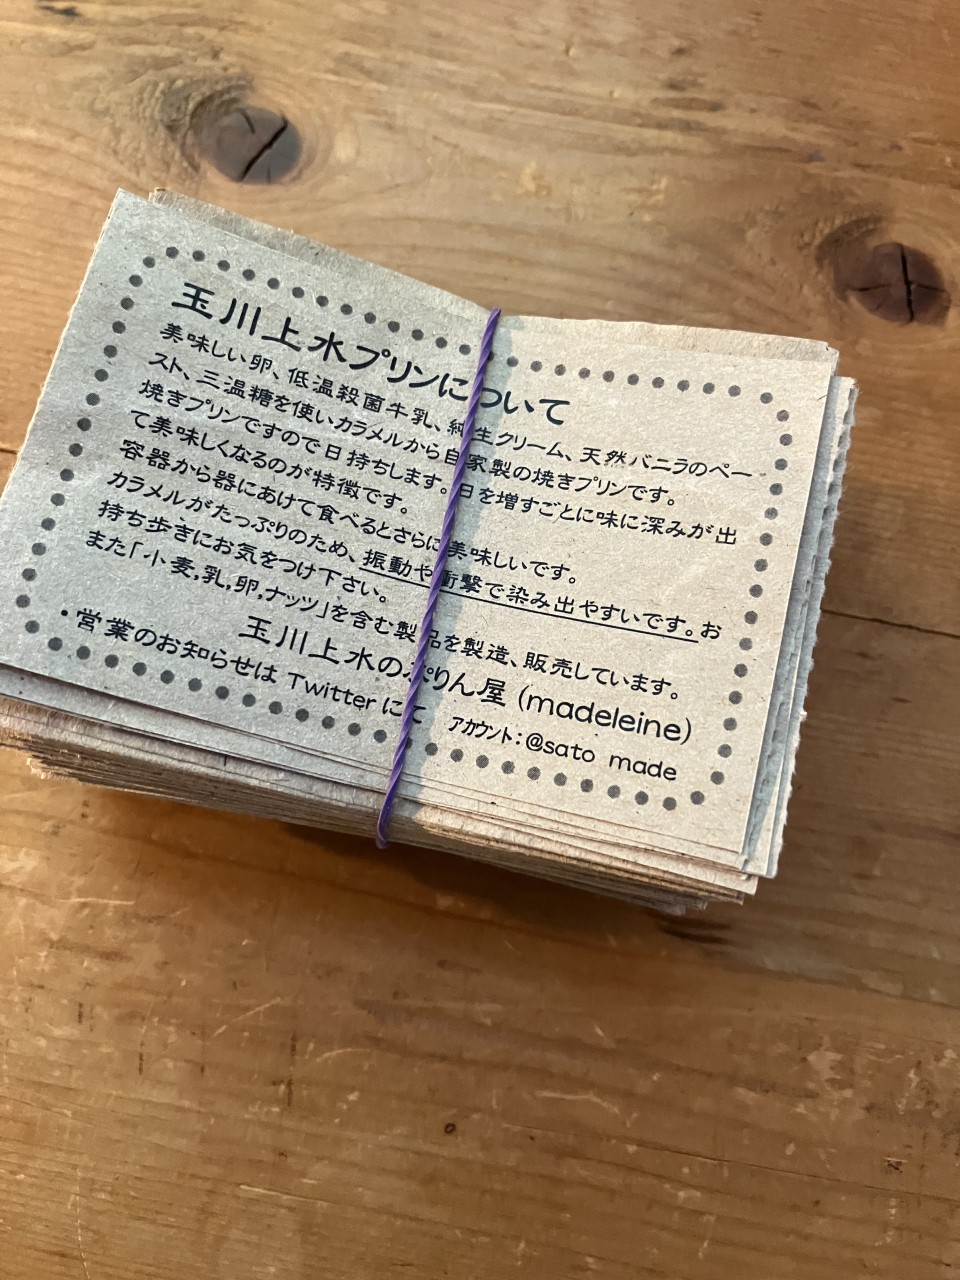 玉川上水プリンについて
美味しい卵、低温殺菌牛乳、純生クリーム、天然バニラのペー
スト、三温糖を使いカラメルから自家製の焼きプリンです。
焼きプリンですので日持ちします。日を増すごとに味に深みが出
て美味しくなるのが特徴です。
容器から器にあけて食べるとさらに美味しいです。
カラメルがたっぷりのため、振動や衝撃で染み出やすいです。お
持ち歩きにお気をつけ下さい。
また「小麦,乳,卵,ナッツ」を含む製品を製造、販売しています。
玉川上水のぷりん屋 (madeleine)
・営業のお知らせは Twitter にて アカウント:@sato made